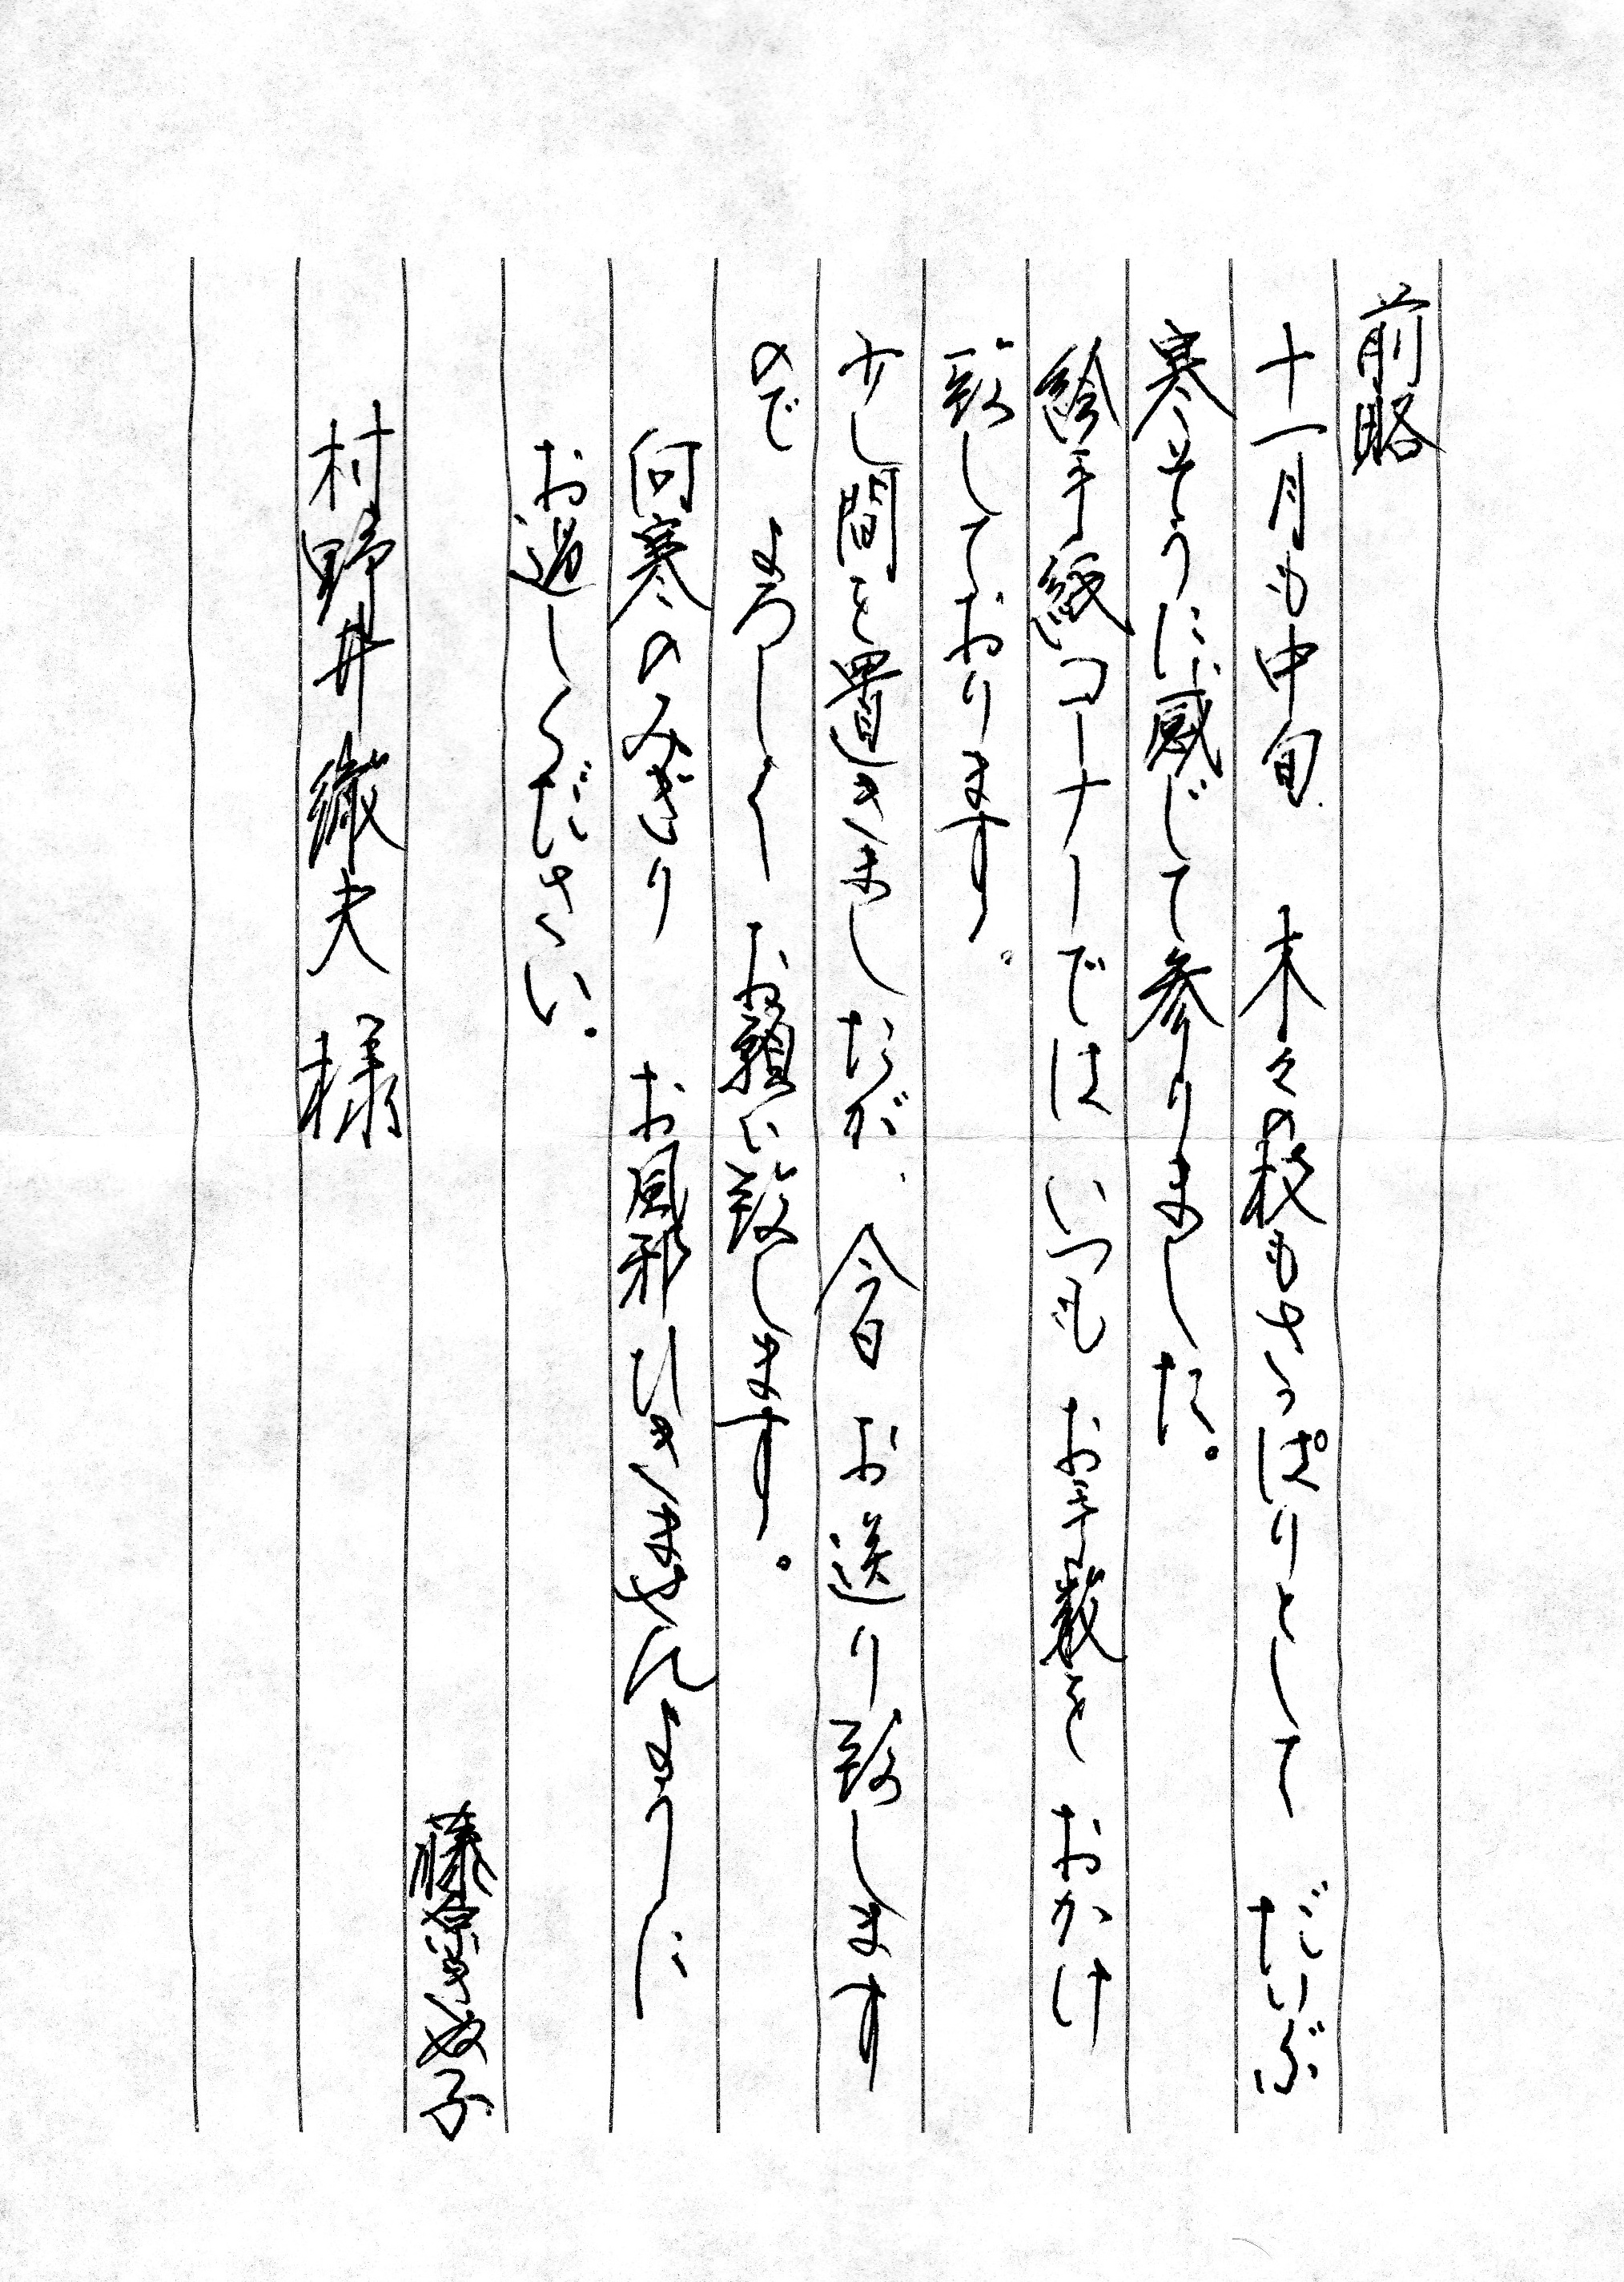 前略
十一月も中旬 木々の枝もさっぱりとして だいぶ
寒そうに感じて参りました。
絵手紙コーナーでは いつも お手数を おかけ
致しております。
少し間を置きましたが、今日 お送り致します
ので よろしく お願い致します。
向寒のみぎり お風邪ひきませんように
お過しください。
子
村野井 徹夫 様